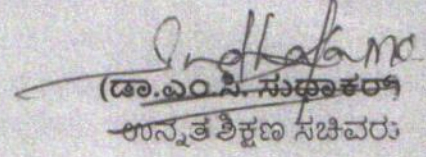 (ಡಾ.ಎಂ.ಸಿ. ಸುಧಾಕರ್)
ಉನ್ನತ ಶಿಕ್ಷಣ ಸಚಿವರು